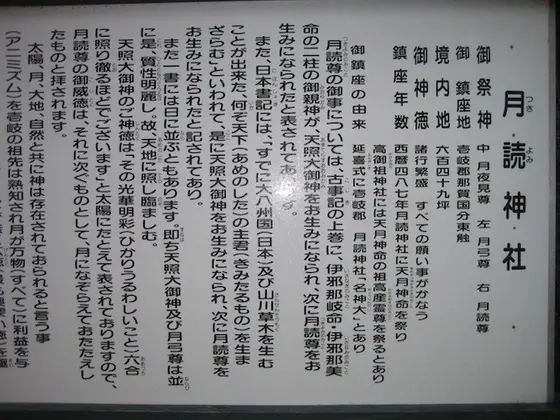 月読神社
つき よみ
御祭神 中 月夜見尊 左 月弓尊 右 月読尊
御鎮座地 壱岐郡那賀国分東触
境内地 六百四十九坪
御神徳 諸行繁盛 すべての願い事がかなう
鎮座年数 西暦四八七年月読神社に天月神命を祭り
高御祖神社には天月神命の祖高産霊尊を祭るとあり
延喜式に壱岐郡 月読神社「名神大」とあり
御鎮座の由来
月読尊の御事については、古事記の上巻に、伊邪那岐命・伊邪那美
命の二柱の御親神が、天照大御神をお生みになられ、次に月読尊をお
生みになられたと表されてあります。
また、日本書記には、「すでに大八州国(日本)及び山川草木を生む
ことが出来た、何ぞ天下(あめのした)の主君(きみたるもの)を生ま
ざらむ」といわれて、是に天照大御神をお生みになられ、次に月読尊を
お生みになられたと記されてあり。
また一書には日に並ぶともあります。即ち天照大御神及び月弓尊は並
に是、質性明麗し。故、天地に照し臨ましむ。
天照大御神のご神徳は「その光華明彩(ひかりうるわしいこと)六合
に照り徹るほどでございます」と太陽にたとえて表されておりますので、
月読尊の御威徳は、それに次ぐものとして、月になぞらえておたたえし
たものと拝されます。
太陽、月、大地、自然と共に神は存在されておられると言う事
(アニミズム)を壱岐の祖先は熟知され月が万物(すべて)に利益を与